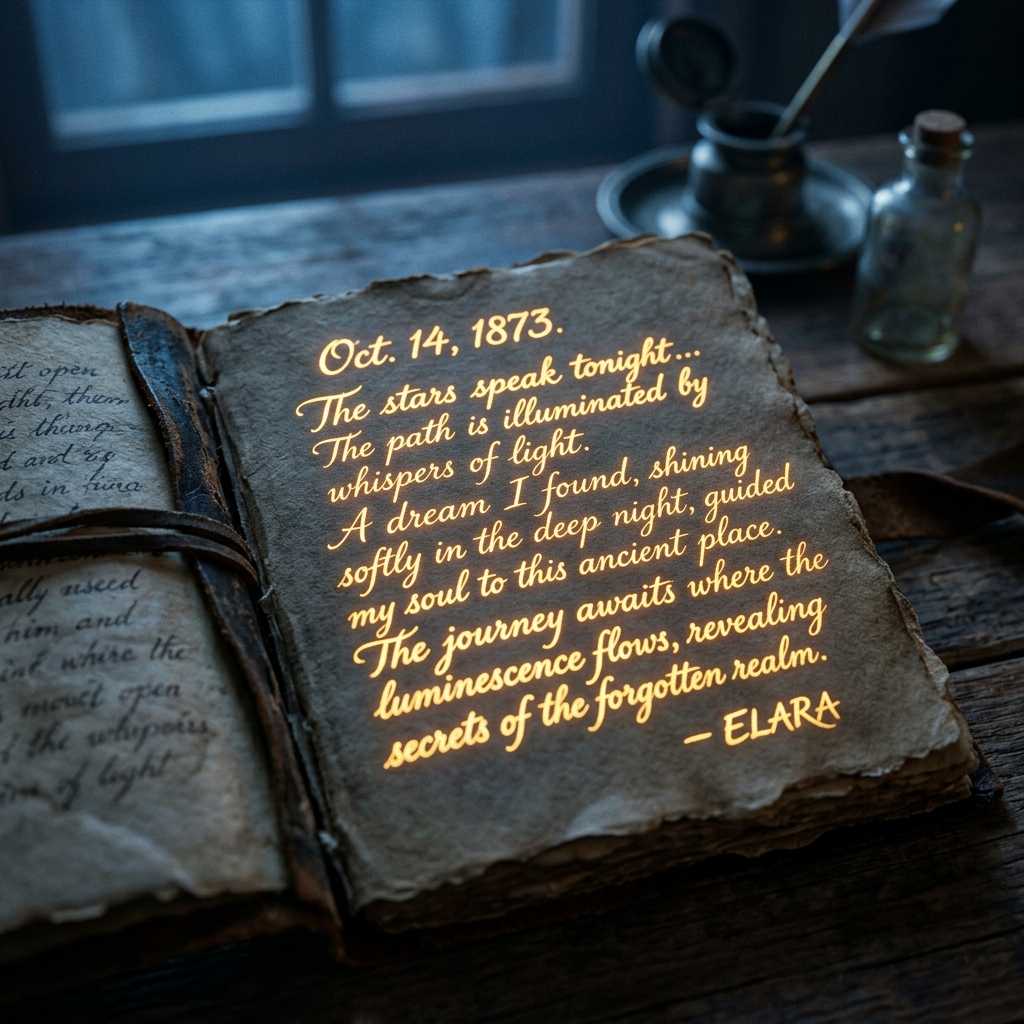 ally used
him and
where the
most open
of the whispers
of light
Oct. 14, 1873.
The stars speak tonight...
The path is illuminated by
whispers of light.
A dream I found, shining
softly in the deep night, guided
my soul to this ancient place.
The journey awaits where the
luminescence flows, revealing
secrets of the forgotten realm.
– ELARA